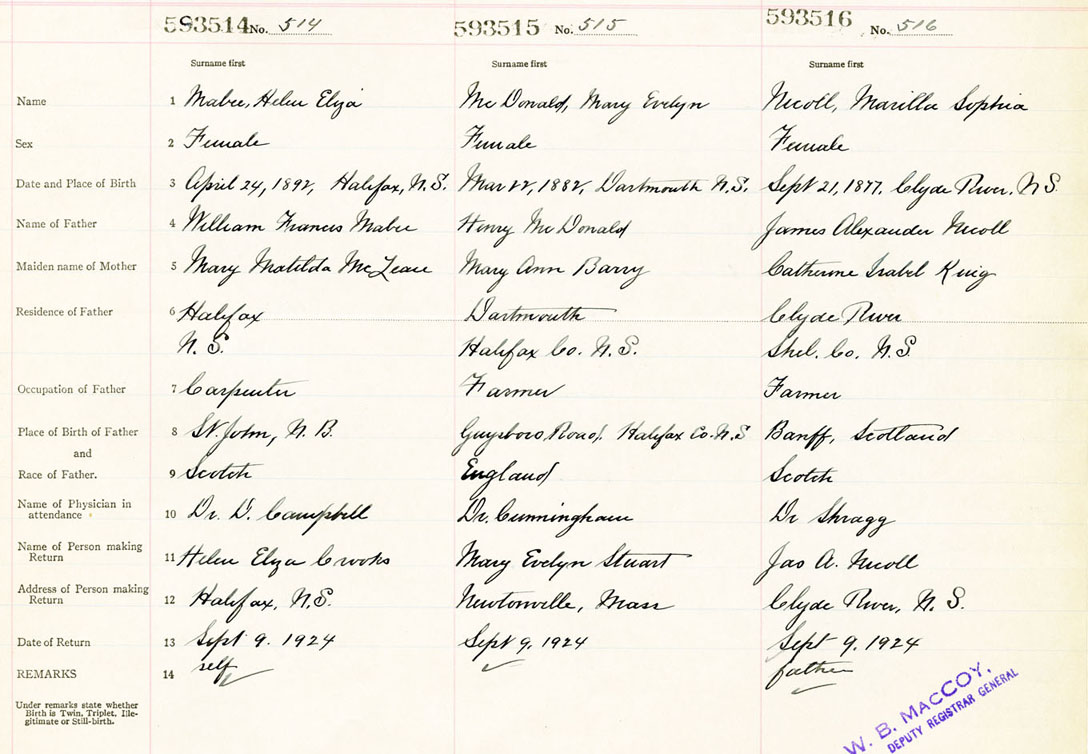 593514 No. 514 593515 No. 515 593516 No. 516
Surname first Surname first Surname first
Name 1 Mabee, Helen Eliza Mc Donald, Mary Evelyn Nicoll, Marilla Sophia
Sex 2 Female Female Female
Date and Place of Birth 3 April 24, 1892, Halifax, N.S. Mar 12, 1882, Dartmouth N.S. Sept 21, 1877, Clyde River, N S.
Name of Father 4 William Francis Mabee Henry Mc Donald James Alexander Nicoll
Maiden name of Mother 5 Mary Matilda McLean Mary Ann Barry Catherine Isabel King
Residence of Father 6 Halifax Dartmouth Clyde River
N. S. Halifax Co. N. S. Shel. Co. N. S
Occupation of Father 7 Carpenter Farmer Farmer
Place of Birth of Father 8 St. John, N. B. Guysboro Road, Halifax Co. N.S Banff, Scotland
and
Race of Father. 9 Scotch England Scotch
Name of Physician in
attendance 10 Dr. D. Campbell Dr. Cunningham Dr Shragg
Name of Person making
Return 11 Helen Eliza Crooks Mary Evelyn Stuart Jas A. Nicoll
Address of Person making
Return 12 Halifax, N.S. Newtonville, Mass Clyde River, N. S.
Date of Return 13 Sept 9. 1924 Sept 9, 1924 Sept 9. 1924
REMARKS 14 self father
Under remarks state whether
Birth is Twin, Triplet, Ille-
gitimate or Still-birth.
W. B. MACCOY,
DEPUTY REGISTRAR GENERAL